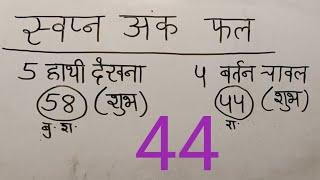 स्वप्न अंक फल
5 हाथी देखना
58 (शुभ)
बु. श.
4 बर्तन चावल
44 (शुभ)
रा.
44